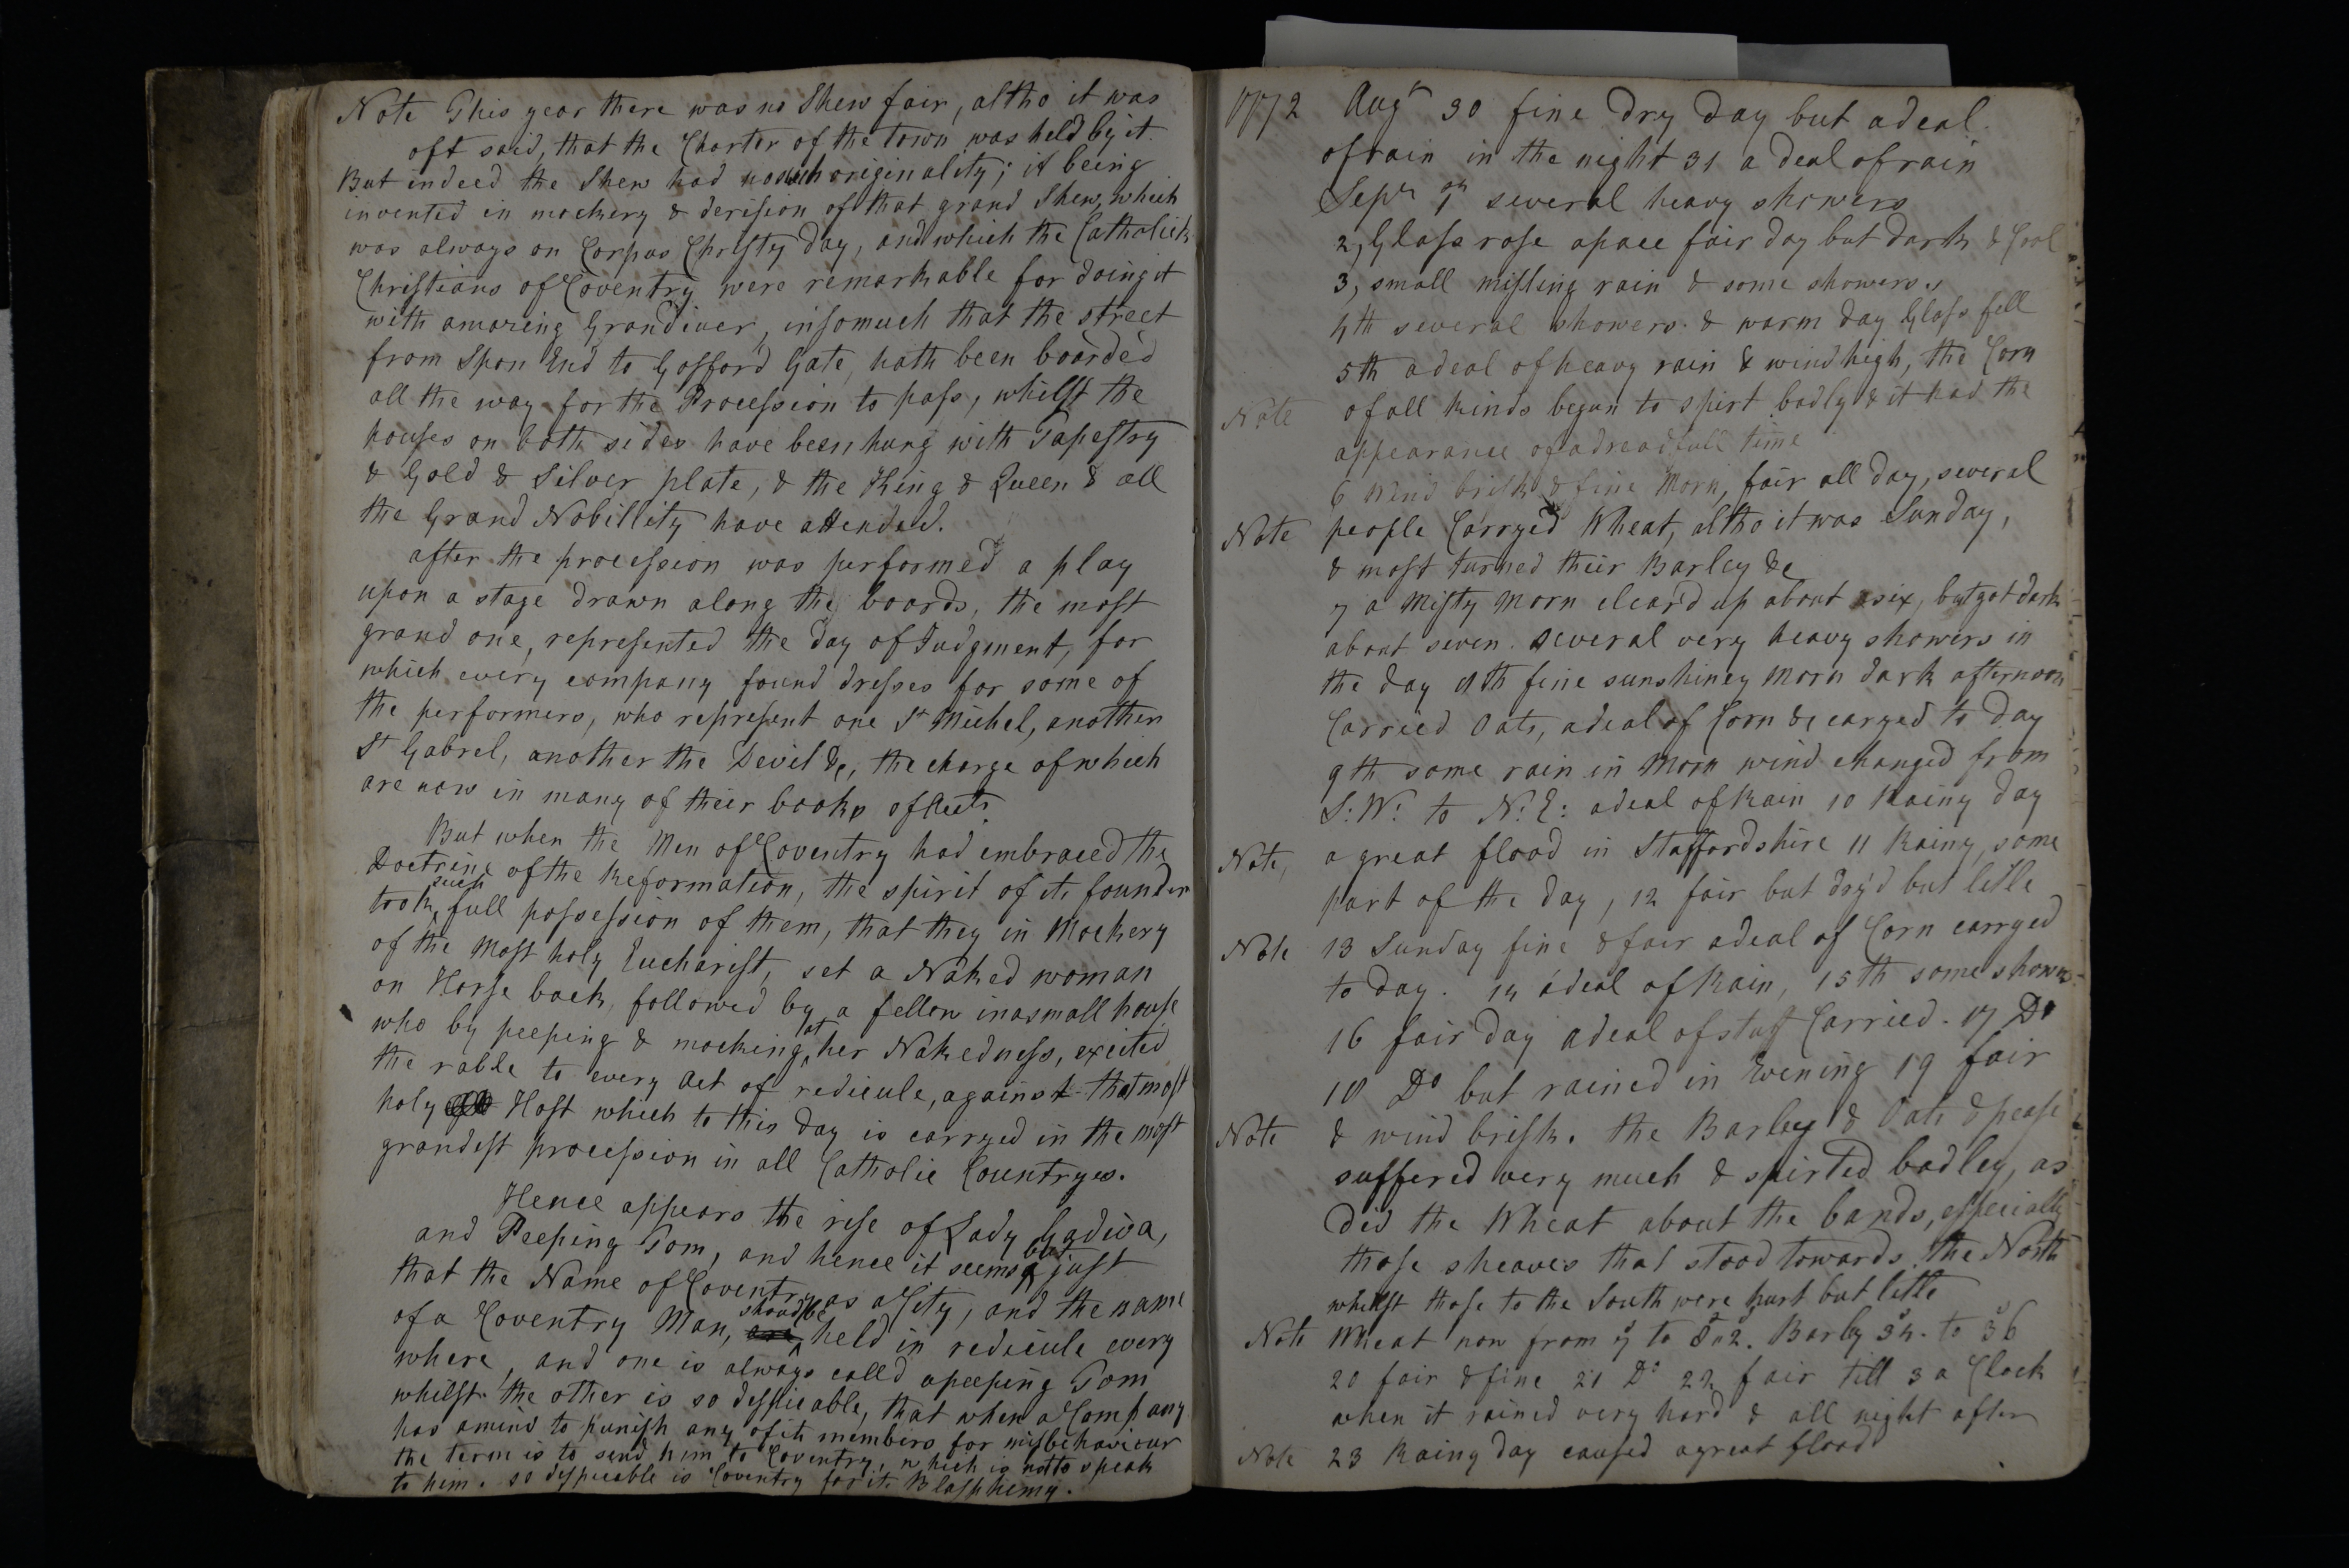 Note This year there was no Shew fair, altho it was
oft said, that the Charter of the town was held by it
But indeed the Shew had no such originality; it being
invented in mockery & derision of that grand Shew, which
was always on Corpus Christy day, and which the Catholick
Christians of Coventry were remarkable for doing it
with amazing Grandiuer, insomuch that the street
from Spon End to Gosford Gate, hath been boarded
all the way for the Procession to pass, whilst the
houses on both sides have been hung with Tapestry
& Gold & Silver plate, & the King & Queen & all
the Grand Nobillity have attended.
after the procession was performed a play
upon a stage drawn along the boards, the most
grand one, represented the day of Judgment, for
which every company found dresses for some of
the performers, who represent one St Michel, another
St Gabrel, another the Devil &c, the charge of which
are now in many of their books of Acts.
But when the Men of Coventry had embraced the
Doctrine of the Reformation, the spirit of its founder
took such full possession of them, that they in Mockery
of the Most holy Eucharist, set a Naked woman
on Horse back, followed by a fellow in a small house
who by peeping & mocking at her Nakedness, excited
the rable to every Act of redicule, against that most
holy Host which to this day is carryed in the most
grandest procession in all Catholic Countryes.
Hence appears the rise of Lady Godiva,
and Peeping Tom, and hence it seems but just
that the Name of Coventry as a City, and the name
of a Coventry Man, shoud be held in redicule every
where, and one is always calld a peeping Tom
whilst the other is so despicable, that when a Company
has a mind to punish any of its members for misbehaviour
the term is to send him to Coventry, which is not to speak
to him. so despicable is Coventry for its Blasphemy.
1772 Augt 30 fine dry day but a deal
of rain in the night 31 a deal of rain
Sepr 1 several heavy showers
2, Glass rose apace fair day but dark & Cool
3, small misling rain & some showers
4th several showers & warm day Glass fell
5th a deal of heavy rain & wind high, the Corn
Note of all kinds began to spirt badly & it had the
appearance of a dreadfull time
6 Wind brisk & fine Morn, fair all day, several
Note people Carryed Wheat, altho it was Sunday,
& most turned their Barley &c
7 a Misty Morn cleard up about six, but got dark
about seven. several very heavy showers in
the day 8th fine sunshiney Morn dark afternoon
Carried Oats, a deal of Corn &c caryed to day
9th some rain in Morn wind changed from
S:W: to N:E: a deal of Rain 10 Rainy day
Note, a great flood in Staffordshire 11 Rainy, some
part of the day, 12 fair but dry'd but litle
Note 13 Sunday fine & fair a deal of Corn carryed
to day. 14 a deal of Rain, 15th some showrs
16 fair day a deal of stuff Carried. 17 Do
18 Do but rained in Evening 19 fair
Note & wind brisk. the Barley & Oats & pease
suffered very much & spirted badley, as
did the Wheat about the bands, especially
those sheaves that stood towards the North
whilst those to the South were hurt but litle
Note Wheat now from 7s to 8s 2. Barly 34s. to 36
20 fair & fine 21 Do 22 fair till 3 a Clock
when it rained very hard & all night after
Note 23 Rainy day caused a great flood